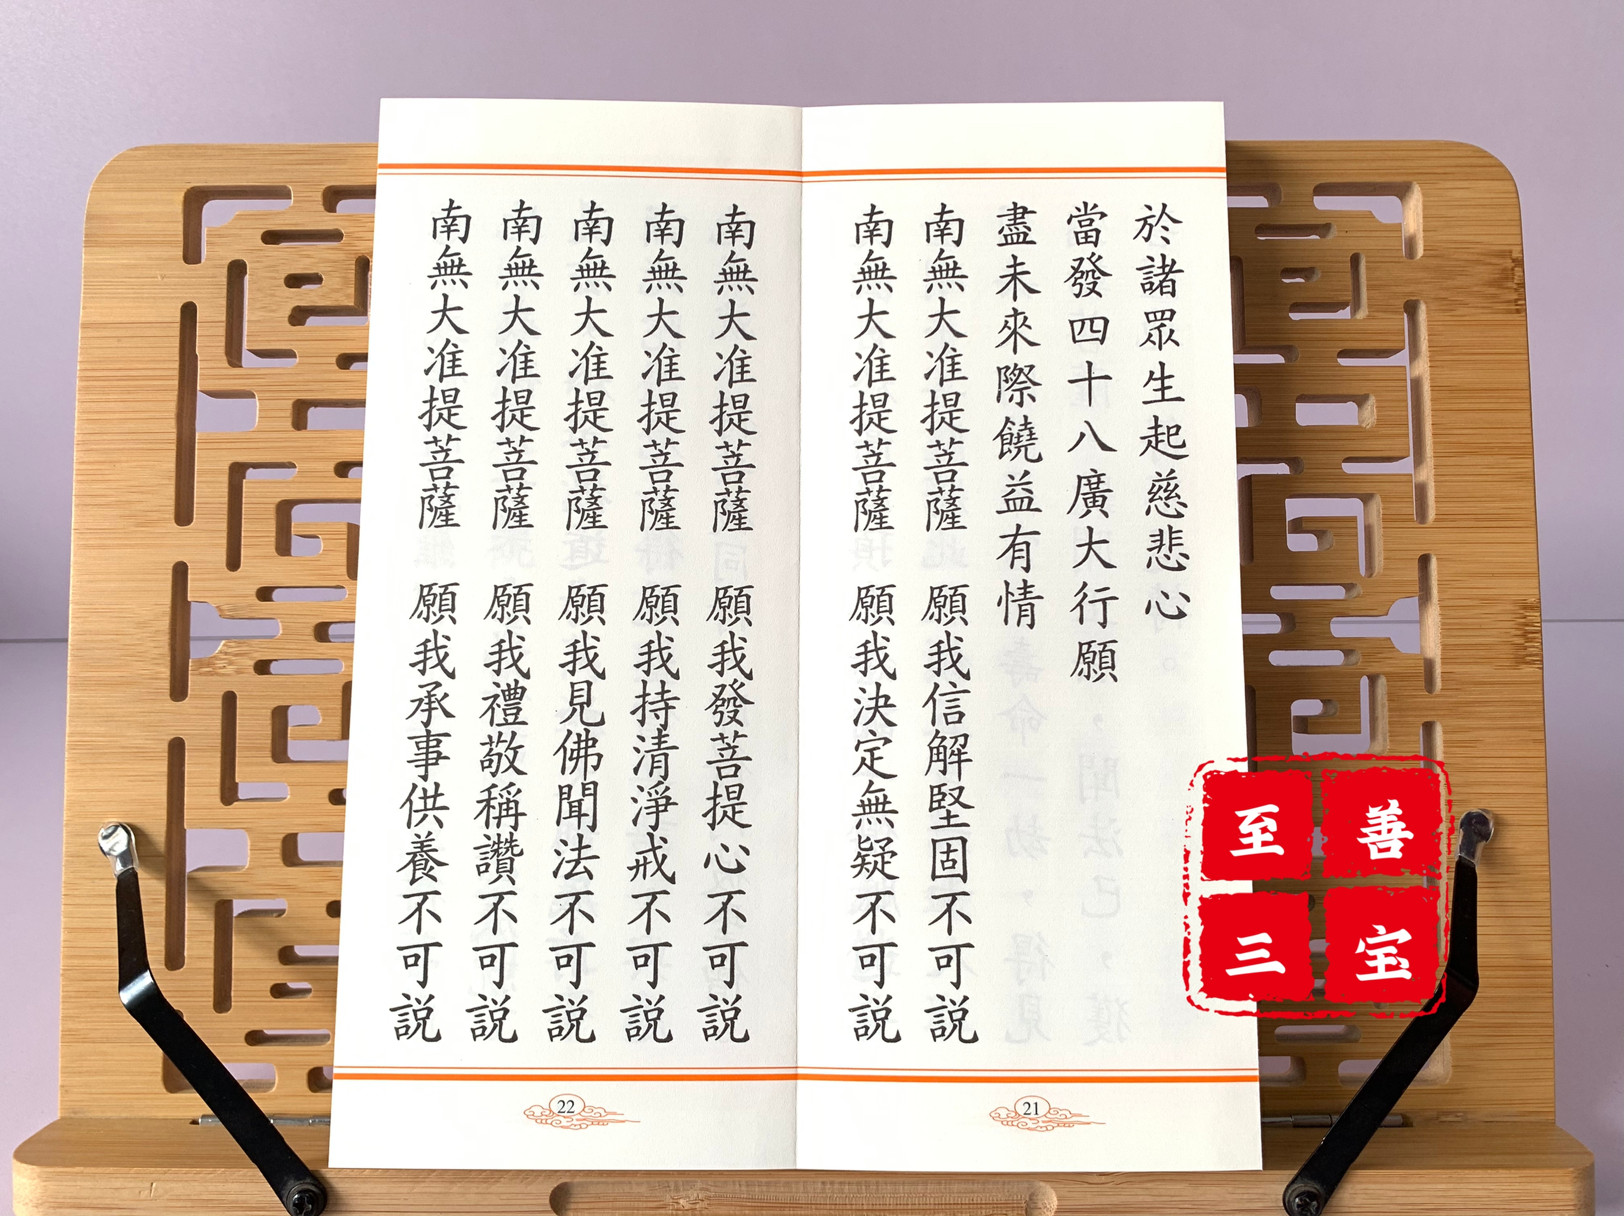 於諸眾生起慈悲心
當發四十八廣大行願
盡未來際饒益有情
南無大准提菩薩 願我信解堅固不可説
南無大准提菩薩 願我決定無疑不可説
21
南無大准提菩薩 願我發菩提心不可説
南無大准提菩薩 願我持清淨戒不可説
南無大准提菩薩 願我見佛聞法不可説
南無大准提菩薩 願我禮敬稱讚不可説
南無大准提菩薩 願我承事供養不可説
22
至善
三宝